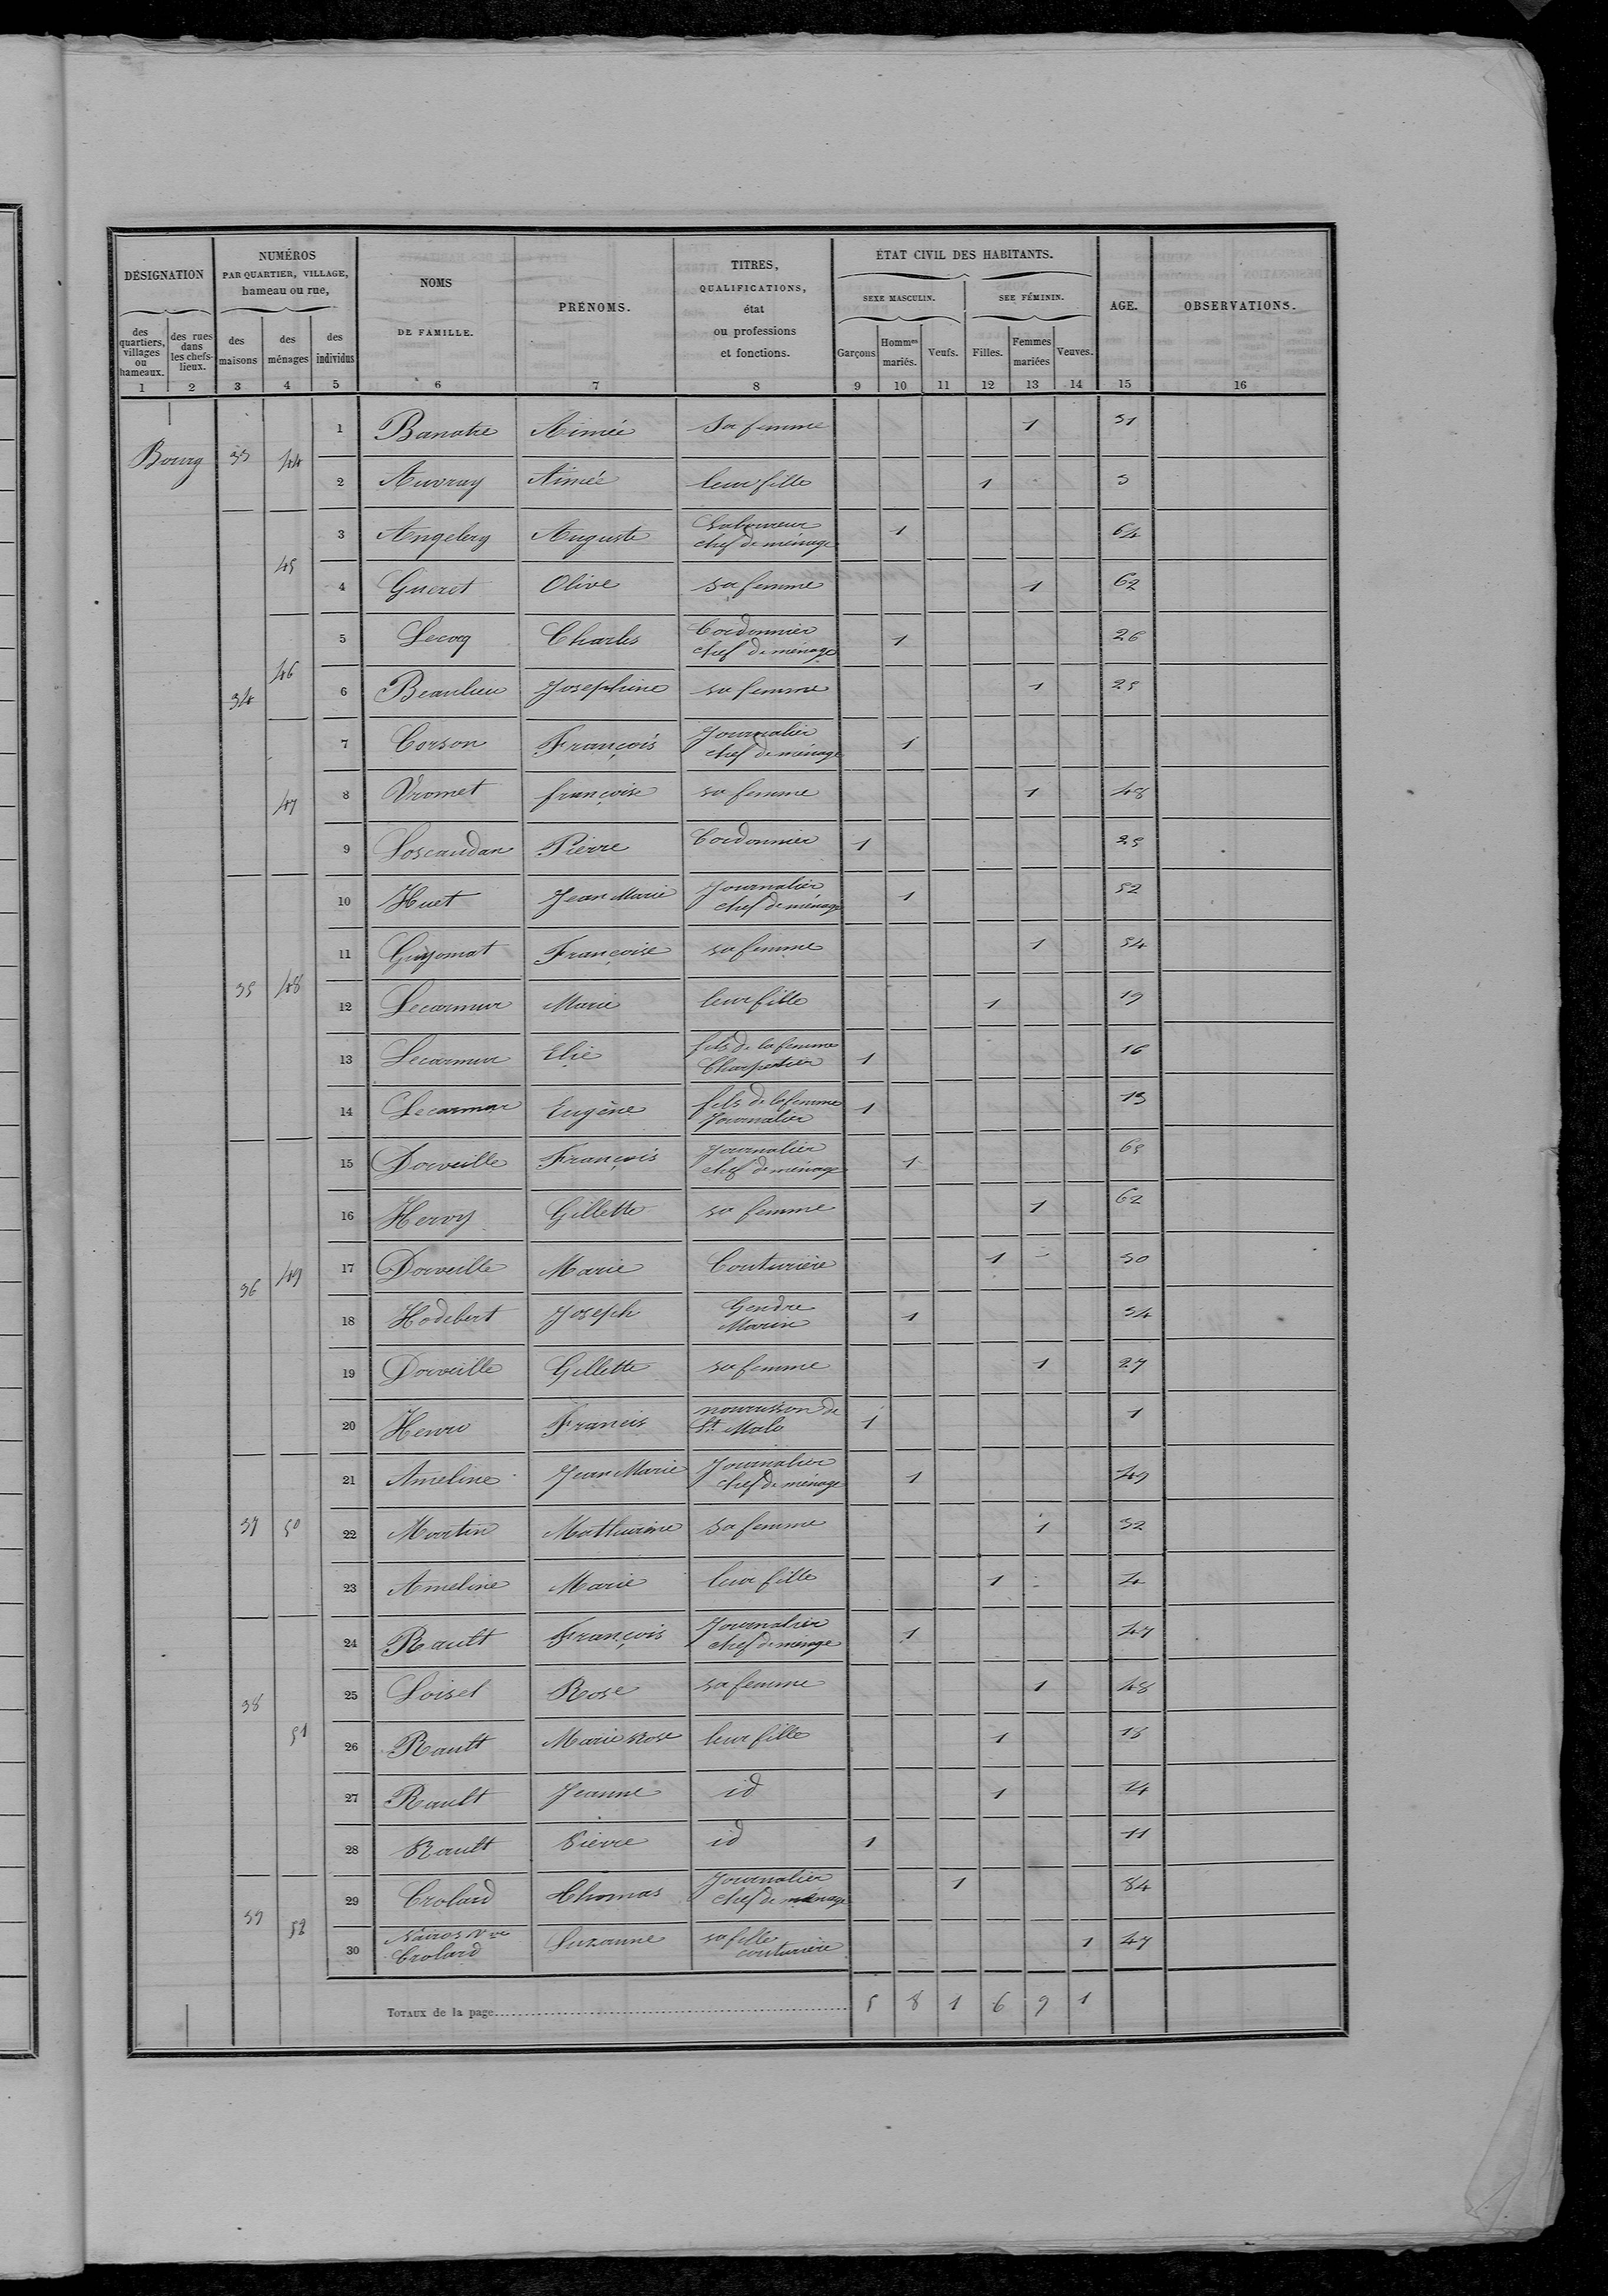 DÉSIGNATION
NUMÉROS
PAR QUARTIER, VILLAGE,
hameau ou rue,
NOMS
DE FAMILLE.
PRÉNOMS.
TITRES,
QUALIFICATIONS,
état
ou professions
et fonctions.
ÉTAT CIVIL DES HABITANTS.
SEXE MASCULIN.
SEE FÉMININ.
AGE.
OBSERVATIONS.
des quartiers, villages ou hameaux.
des rues dans les chefs-lieux.
des maisons
des ménages
des individus
Garçons
Hommes mariés.
Veufs.
Filles.
Femmes mariées
Veuves.
1 2 3 4 5 6 7 8 9 10 11 12 13 14 15 16
Bourg 33 44
1 Banatre Aimée Sa femme 1 31
2 Auvray Aimée leur fille 1 3
45
3 Angelery Auguste Laboureur chef de ménage 1 64
4 Gueret Olive sa femme 1 62
34 46
5 Lecoq Charles Cordonnier chef de ménage 1 26
6 Beaulieu Josephine sa femme 1 25
47
7 Corson François Journalier chef de ménage 1
8 Vromet françoise sa femme 1 48
9 Loscaudan Pierre Cordonnier 1 25
35 48
10 Huet Jean Marie Journalier chef de ménage 1 52
11 Guyomat Françoise sa femme 1 54
12 Lecarmur Marie leur fille 1 19
13 Lecarmur Elie fils de la femme Charpentier 1 16
14 Lecarmur Eugène fils de la femme Journalier 1 13
36 49
15 Dorveille François Journalier chef de ménage 1 65
16 Hervy Gillette sa femme 1 62
17 Dorveille Marie Couturière 1 30
18 Hodebert Joseph Gendre Marin 1 34
19 Dorveille Gillette sa femme 1 27
20 Henri Francis nourrisson de St Malo 1 1
37 50
21 Ameline Jean Marie Journalier chef de ménage 1 49
22 Martin Mathurine sa femme 1 32
23 Ameline Marie leur fille 1 4
38 51
24 Rault François Journalier chef de ménage 1 47
25 Loisel Rose sa femme 1 48
26 Rault Marie Rose leur fille 1 15
27 Rault Jeanne id 1 14
28 Rault Pierre id 1 11
39 52
29 Crolard Thomas Journalier chef de ménage 1 84
30 Vve Crolard Suzanne sa fille couturière 1 47
TOTAUX de la page 5 8 1 6 9 1